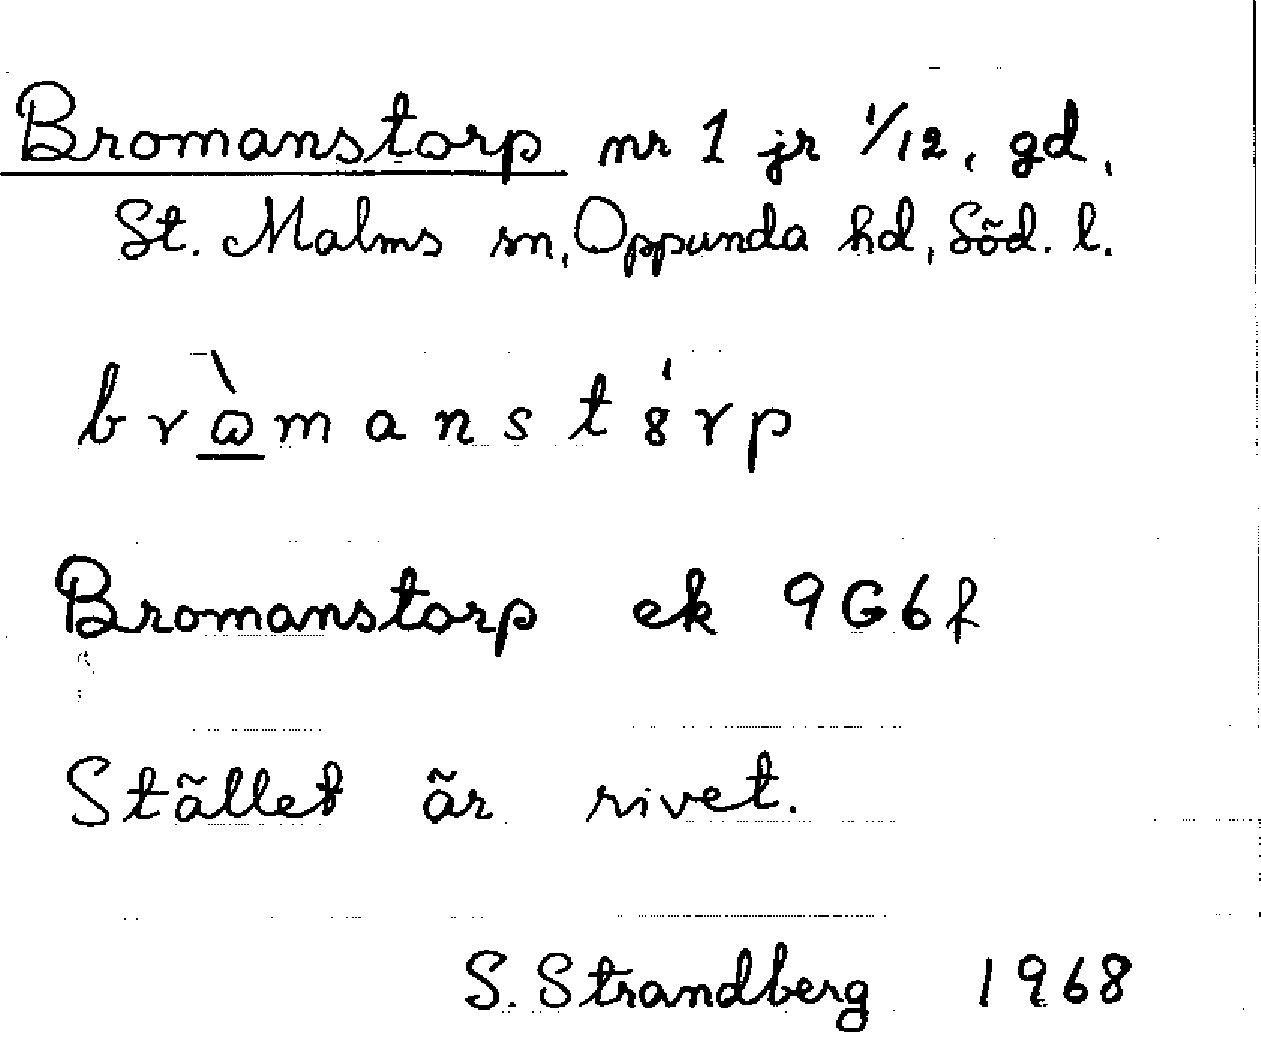 Bromanstorp nr 1 jr 1/12, gd,
St. Malms sn, Oppunda hd, Söd. l.
brɷ̀manstȣ́rp
Bromanstorp ek 9G6f
Stället är rivet.
S. Strandberg 1968